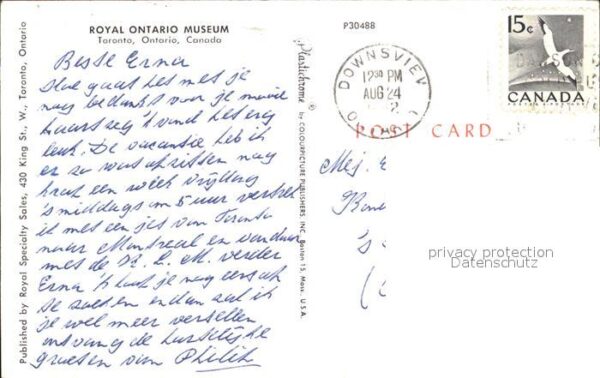 ROYAL ONTARIO MUSEUM
Toronto, Ontario, Canada
P30488
Published by Royal Specialty Sales, 430 King St., W., Toronto, Ontario
Plastichrome ® by COLOURPICTURE PUBLISHERS, INC. Boston 15, Mass. U.S.A.
Beste Erna
Hoe gaat het met je
nog bedankt voor je mooie
kaart zeg 'k vond het erg
leuk. De vacantie heb ik
er zo wat opzitten nog
krap een week vrijdag
's middags om 5 uur vertrek
ik met een jet van Toronto
naar Montreal en vandaar
met de K.L.M. verder
Erna 'k hoop je nog eens
te zoeken en dan zal ik
je wel meer vertellen
ontvang de hartelijke
groeten van
DOWNSVIEW
12 30 PM
AUG 24
15c
CANADA
POST CARD
Mej. E
privacy protection
Datenschutz